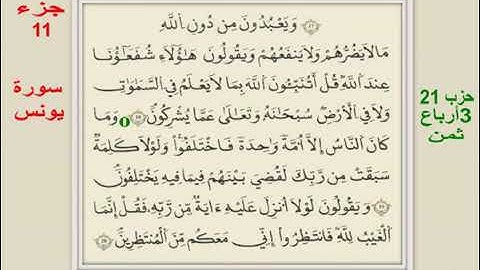 جزء
11
سورة
يونس
وَيَعْبُدُونَ مِن دُونِ اِللَّهِ
مَا لَا يَضُرُّهُمْ وَلَا يَنفَعُهُمْ وَيَقُولُونَ هَٰؤُلَآءِ شُفَعَٰٓؤُنَا
عِندَ اَللَّهِ قُلَ اَتُنَبِّـُٔونَ اَللَّهَ بِمَا لَا يَعْلَمُ فِي اِلسَّمَٰوَٰتِ
وَلَا فِي اِلْأَرْضِ سُبْحَٰنَهُۥ وَتَعَٰلَىٰ عَمَّا يُشْرِكُونَ وَمَا
كَانَ اَلنَّاسُ إِلَّآ أُمَّةً وَٰحِدَةً فَاخْتَلَفُواْ وَلَوْلَا كَلِمَةٌ
سَبَقَتْ مِن رَّبِّكَ لَقُضِيَ بَيْنَهُمْ فِيمَا فِيهِ يَخْتَلِفُونَ
وَيَقُولُونَ لَوْلَآ أُنزِلَ عَلَيْهِ ءَايَةٌ مِّن رَّبِّهِۦ فَقُلِ اِنَّمَا
اَلْغَيْبُ لِلهِ فَانتَظِرُوٓاْ إِنِّي مَعَكُم مِّنَ اَلْمُنتَظِرِينَ
حزب 21
3أرباع
ثمن